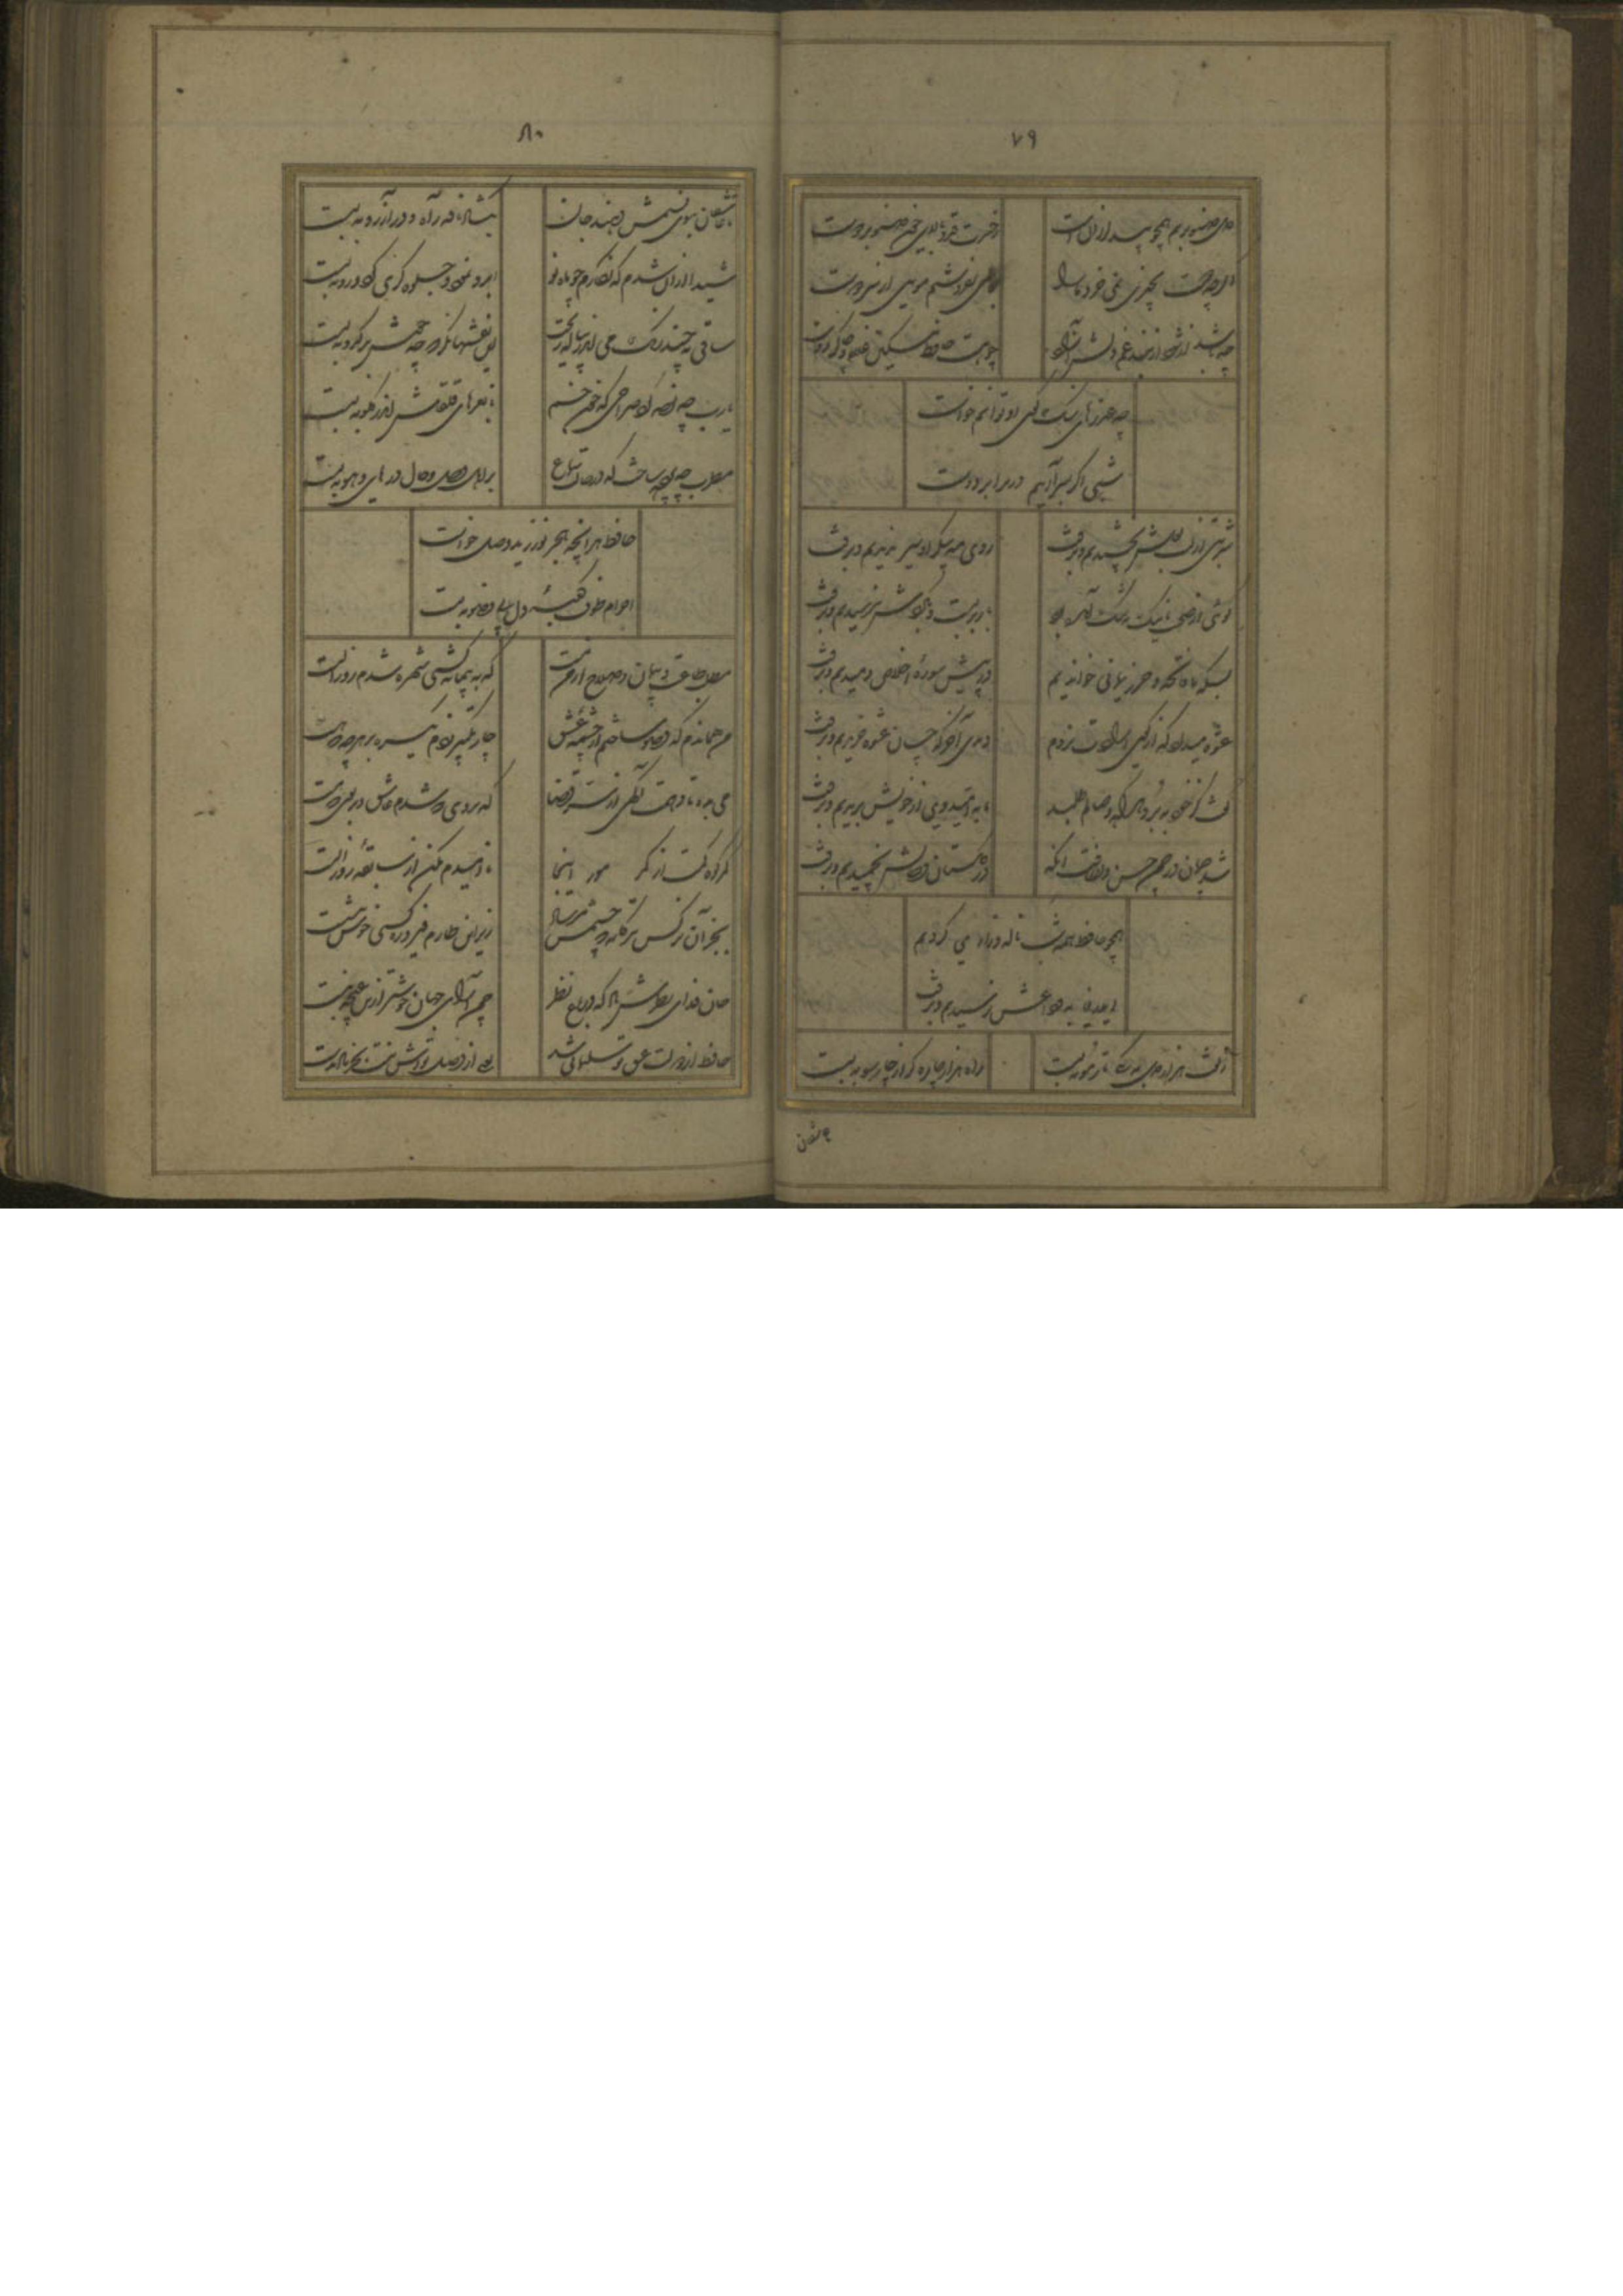 ۷۹
دل صنوبریم همچو بید لرزان است
ز حسرت قد و بالای چون صنوبر دوست
اگرچه دوست بچیزی نمی خرد ما را
بعالمی نفروشیم مویی از سر دوست
چه باشد ار شود از بند غم دلش آزاد
چو هست حافظ مسکین غلام و چاکر دوست
شبی اگر بسر آریم در برابر دوست
شربتی از لب لعلش نچشیدیم و برفت
روی مه پیکر او سیر ندیدیم و برفت
گوئی از صحبت ما نیک بتنگ آمده بود
بار بربست و بگردش نرسیدیم و برفت
بسکه ما فاتحه و حرز یمانی خواندیم
در پیش سورهٔ اخلاص دمیدیم و برفت
عشوه میداد که از کوی ارادت نروم
دیدی آخر که چنان عشوه خریدیم و برفت
گفت از خود ببرد هر که وصالم طلبد
ما به امید وی از خویش بریدیم و برفت
شد چمان در چمن حسن و لطافت لیکن
در گلستان وصالش نچمیدیم و برفت
همچو حافظ همه شب ناله و زاری کردیم
ای دریغا به وداعش نرسیدیم و برفت
زلفت هزار دل به یکی تار مو ببست
راه هزار چاره گر از چار سو ببست
تا عاشقان
۸۰
تا عاشقان ببوی نسیمش دهند جان
بگشاد نافه را و در آرزو ببست
شیدا از آن شدم که نگارم چو ماه نو
ابرو نمود و جلوه گری کرد و رو ببست
ساقی به چند رنگ می اندر پیاله ریخت
این نقشها نگر که چه خوش در کدو ببست
یارب چه غمزه کرد صراحی که خون خم
با نعرهای قلقلش اندر گلو ببست
مطرب چه پرده ساخت که در پرده سماع
بر اهل وجد و حال در های و هو ببست
حافظ هر آنچه عشق نورزید و وصل خواست
احرام طوف کعبهٔ دل بی وضو ببست
مطلب طاعت و پیمان و صلاح از من مست
که به پیمانه کشی شهره شدم روز الست
من همان دم که وضو ساختم از چشمهٔ عشق
چار تکبیر زدم یکسره بر هر چه که هست
می بده تا دهمت آگهی از سر قضا
که بروی که شدم عاشق و بر بوی که مست
کمر کوه کمست از کمر مور اینجا
ناامیدم مکن از سابقهٔ روز الست
بجز آن نرگس مستانه که چشمش مرساد
زیر این طارم فیروزه کسی خوش ننشست
جان فدای دهنش باد که در باغ نظر
چمن آرای جهان خوشتر ازین غنچه نبست
حافظ از دولت عشق تو سلیمانی شد
یعنی از وصل تواش نیست بجز باد بدست